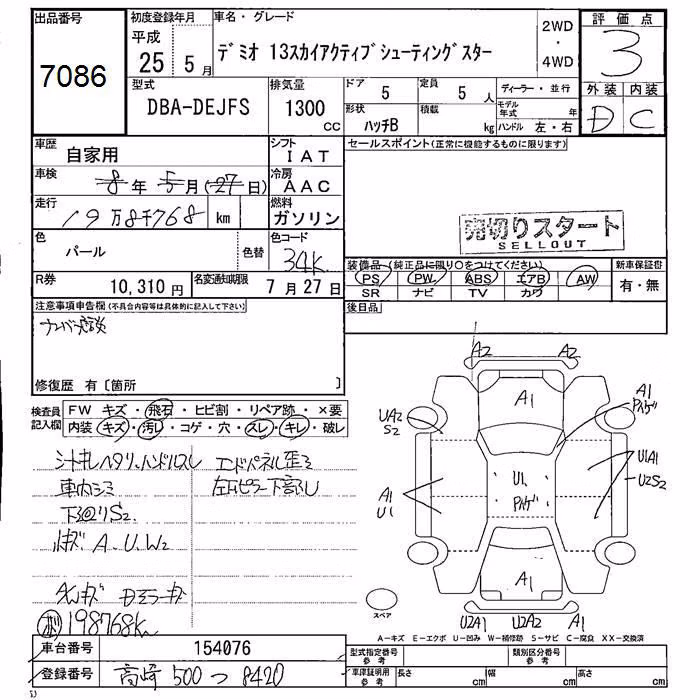 出品番号
7086
初度登録年月
平成
25 5月
車名・グレード
デミオ 13スカイアクティブシューティングスター
2WD
・
4WD
評価点
3
外装 内装
D C
型式
DBA-DEJFS
排気量
1300
CC
ドア
5
定員
5 人
形状
ハッチB
積載
kg
ディーラー・並行
モデル年式 年
ハンドル 左・右
車歴
自家用
シフト
IAT
車検
8年 5月(27日)
冷房
AAC
走行
19万8千768 km
燃料
ガソリン
色
パール
色替
色コード
34K
R券
10,310円
名変通知期限
7月27日
セールスポイント(正常に機能するものに限ります)
売切りスタート
SELLOUT
装備品(純正品に限り○をつけてください)
PS PW ABS エアB AW
SR ナビ TV カワ
新車保証書
有・無
後日品
注意事項申告欄(不具合内容等は具体的に記入して下さい)
修復歴 有〔箇所 〕
検査員
記入欄
FW キズ・飛石・ヒビ割・リペア跡・×要
内装 キズ・汚レ・コゲ・穴・スレ・キレ・破レ
シートキレヘタリ,ハンドルスレ
エンドパネル歪ミ
車内シミ
左右ピラー下部U
S2
A.U.W2
198768K
A2 A2
A1
A1
UA2
S2
U1
A1
U1
U1A1
U2S2
A1
U2A1 U2A2 A1
スペア
A−キズ E−エクボ U−凹み W−補修跡 S−サビ C−腐食 XX−交換済
車台番号
154076
登録番号
高崎 500 つ 8420
型式指定番号
参考
類別区分番号
参考
車庫証明用
参考
長さ cm
幅 cm
高さ cm